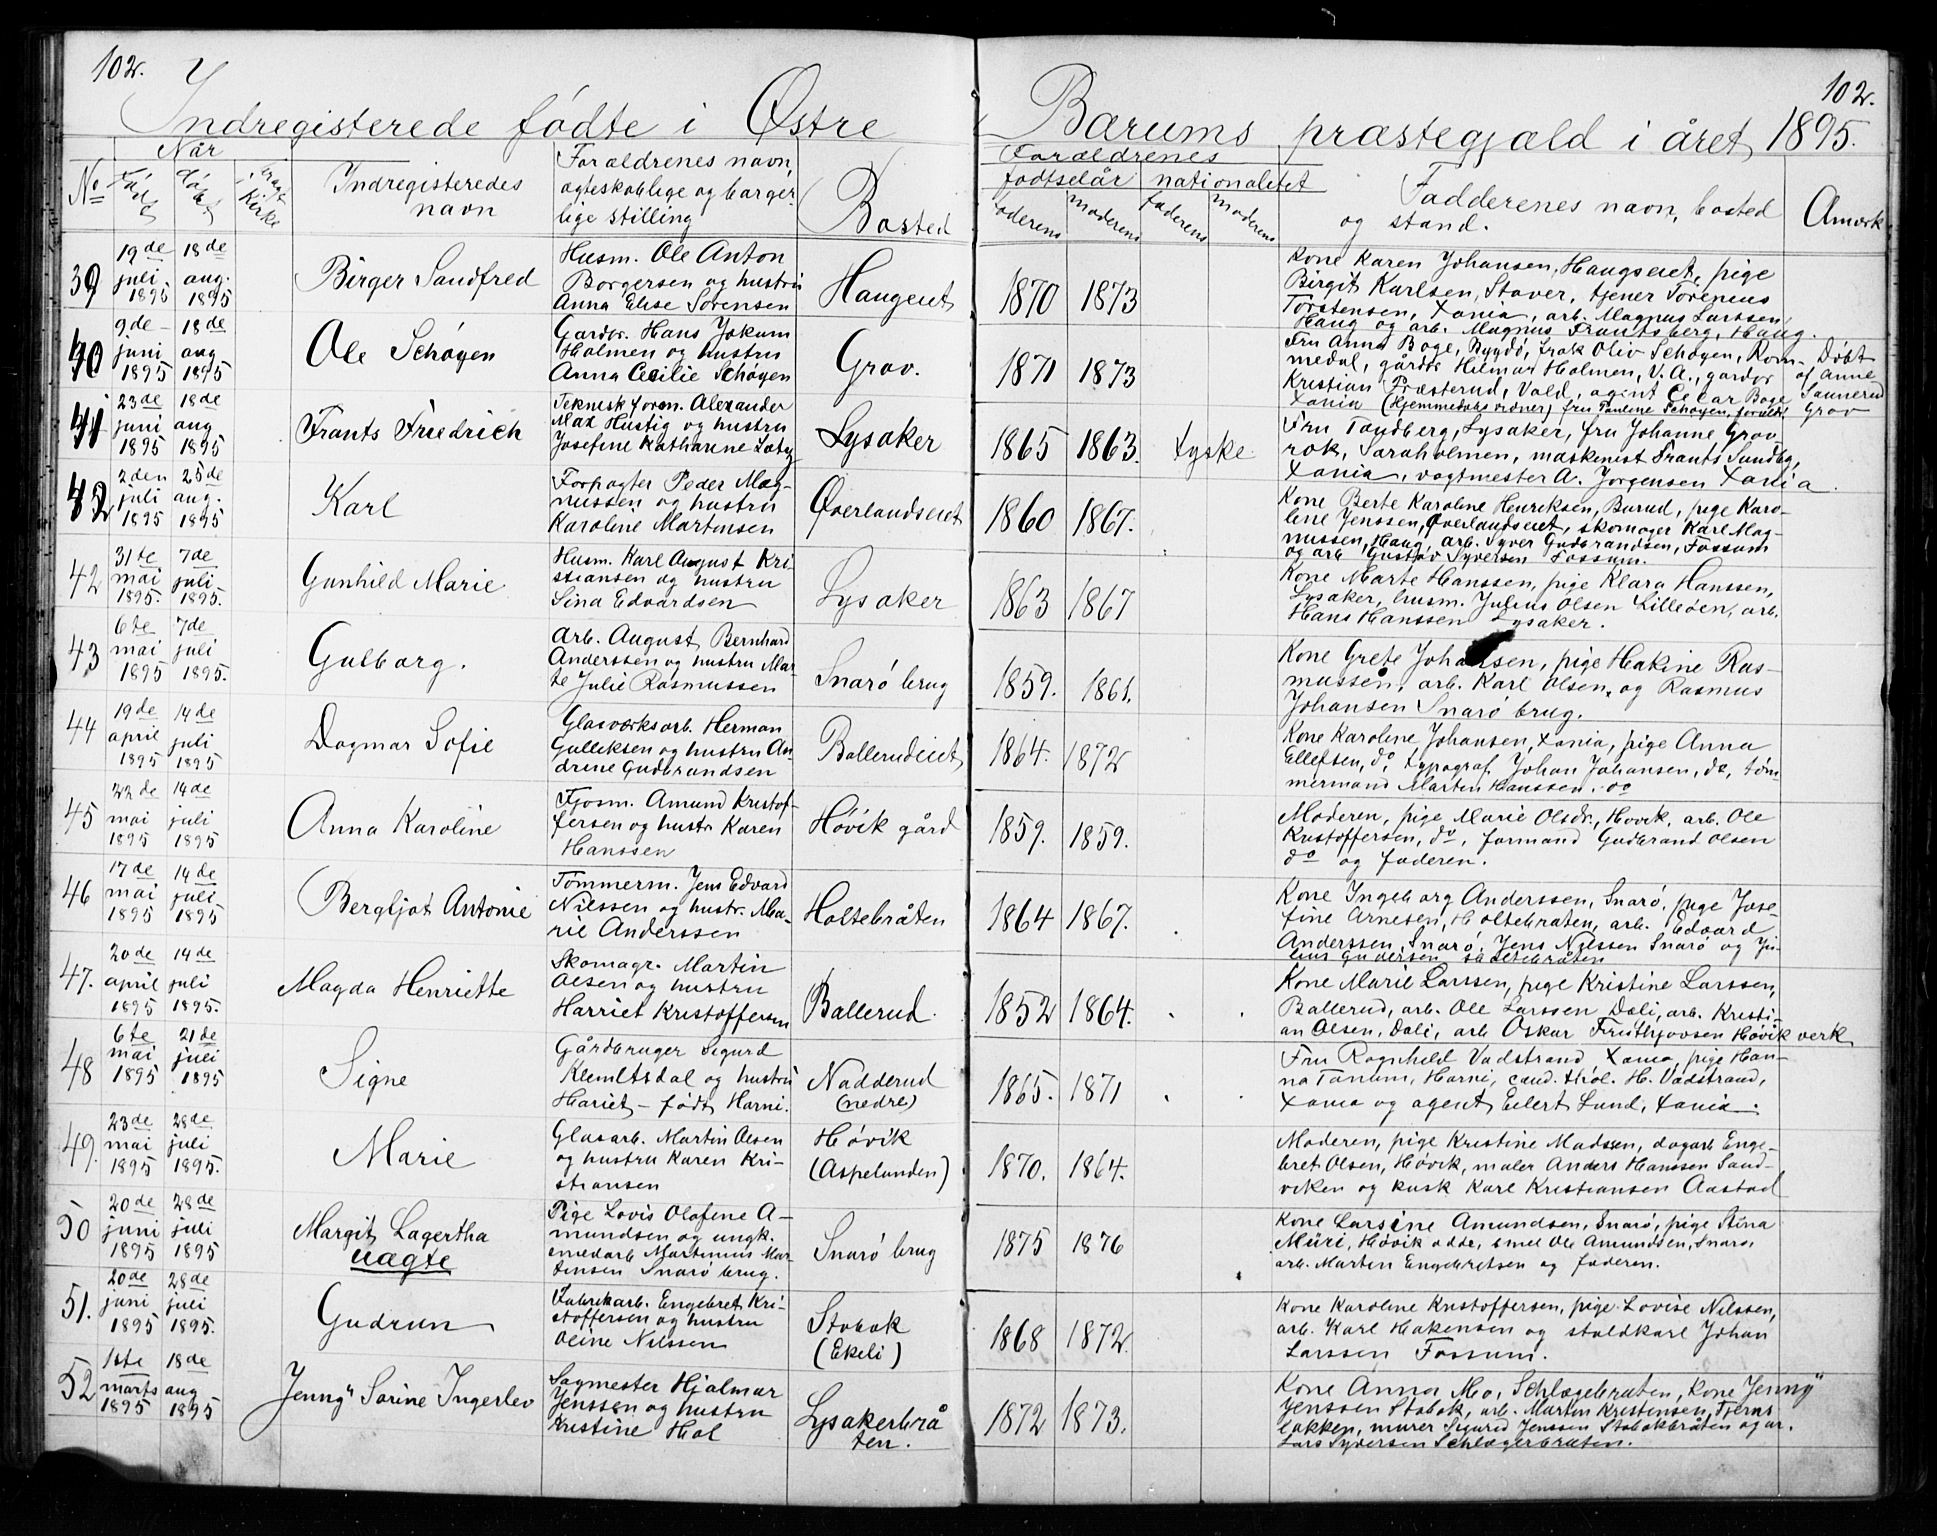 102. 102.
Indregisterede fødte i Østre Bærums præstegjæld i året 1895.
No Når Indregisteredes navn Forældrenes navn, ægteskablige og borgerlige stilling Bosted
Forældrenes fødtselår nationalitet Fadderenes navn, bosted og stand. Anmærk
født døbt i Kirke faderens moderens faderens moderens
39 19de juli 1895 18de aug. 1895 Birger Sandfred
Husm. Ole Anton
Borgersen og hustru
Anna Elise Sørensen
Haugeiet 1870 1873
Kone Karen Johansen, Haugseiet, pige
Birgit Karlsen, Staver, tjener Torenius
Torstensen, Xania, arb. Magnus Larssen
Haug og arb. Magnus Frantsberg, Haug.
40 9de juni 1895 18de aug 1895 Ole Schøyen
Gardbr. Hans Jokum
Holmen og hustru
Anna Cecilie Schøyen
Grav. 1871 1873
Fru Anna Boge, Bygdø, frøk Oliv Schøyen, Rom-
medal, gårdbr Hilmar Holmen, V. A., gardbr
Kristian Præsterud, Vold, agent Cesar Boge
Xania (Hjemmedøbs vidner) fru Pauline Schøyen
Døbt
af Anne
Grav
41 23de juni 1895 18de aug 1895 Frants Friedrich
Teknisk foren. Alexander
Max Hustig og hustru
Josefine Katharine
Lysaker 1865 1863. tyske
Fru Tandberg, Lysaker, fru Johanne Grav
rok, Saraholmen, maskinist Frants Sundbg,
Xania, vagtmester A. Jørgensen Xania.
42 2den juli 1895 25de aug. 1895 Karl
Forpagter Peder Mag-
nussen og hustru
Karoline Martinsen
Øverlandseiet 1860 1867.
Kone Berte Karoline Henriksen, Burud, pige Karo-
line Jenssen, Øverlandseiet, skomager Karl Mag-
nussen, Haug, arb. Syver Gudbrandsen, Fossum
og arb Gustav Syversen Fossum.
42 31te mai 1895. 7de juli 1895. Gunhild Marie
Husm. Karl August Kri
stiansen og hustru
Sina Edvardsen
Lysaker 1863 1867
Kone Marte Hanssen, pige Klara Hanssen,
Lysaker, husm. Julius Olsen Lilleøen, arb.
Hans Hanssen Lysaker.
43 6te mai 1895 7de juli 1895. Gulborg.
Arb. August Bernhard
Anderssen og hustru Mar-
te Julie Rasmussen
Snarø brug 1859. 1861.
Kone Grete Johansen, pige Hakine Ras-
mussen, arb. Karl Olsen, og Rasmus
Johansen Snarø brug.
44 19de april 1895 14de juli 1895 Dagmar Sofie
Glasværksarb. Herman
Gulleksen og hustru An
drine Gudbrandsen
Ballerudeiet 1864. 1872
Kone Karoline Johansen, Xania, pige Anna
Ellefsen, do, typograf Johan Johansen, do, tøm-
mermand Marten Hanssen, do
45 22de mai 1895 14de juli 1895 Anna Karoline
Fjøsm. Amund Kristof-
fersen og hustr Karen
Hanssen
Høvik gård 1859. 1859.
Moderen, pige Marie Olsdr., Høvik, arb. Ole
Kristoffersen, do, formand Gudbrand Olsen
do og faderen.
46 17de mai 1895 14de juli 1895 Bergljot Antonie
Tømmerm. Jens Edvard
Nilssen og hustr. Ma-
rie Anderssen
Holtebråten 1864 1867.
Kone Ingeborg Anderssen, Snarø, pige Jose-
fine Arnesen, Holtebråten, arb. Edvard
Anderssen, Snarø, Jens Nilssen Snarø og Ju-
lius Gudersen
47. 20de april 1895 14de juli 1895. Magda Henriette
Skomagr. Martin
Olsen og hustru
Harriet Kristoffersen
Ballerud. 1852 1864.
Kone Marie Larssen, pige Kristine Larssen,
Ballerud, arb. Ole Larssen Dæli, arb. Kristi-
an Olsen, Dæli, arb Oskar Fritthjovsen Høvik verk
48 6te mai 1895 21de juli 1895 Signe
Gårdbruger Sigurd
Klemetsdal og hustru
Hariet – født Harni.
Nadderud
(nedre)
1865. 1871
Fru Ragnhild Vadstrand, Xania, pige Han-
na Tanum, Harni, cand. thol. H. Vadstrand,
Xania og agent Eilert Lund, Xania.
49. 23de mai 1895 28de juli 1895. Marie
Glasarb. Martin Olsen
og hustru Karen Kri-
stiansen
Høvik
(Aspelunden)
1870. 1864.
Moderen, pige Kristine Madssen, dagarb Enge-
bret Olsen, Høvik, maler Anders Hanssen Sand-
viken og kusk Karl Kristiansen Aastad
50 20de juni 1895 28de juli 1895 Margit Lagertha
uægte
Pige Lovis Olafine A-
mundsen og ungk.
smedarb Martinius Mar-
tinsen Snarø brug.
Snarø brug 1875 1876
Kone Larsine Amundsen, Snarø, pige Stina
Müri, Høvik odde, smed Ole Amundsen, Snarø,
arb. Martin Engebretsen og faderen.
51. 20de juni 1895 28de juli 1895. Gudrun
Fabrikarb. Engebret Kri-
stoffersen og hustru
Oline Nilssen
Stabæk
(Ekeli)
1868 1872.
Kone Karoline Kristoffersen, pige Lovise Nilssen,
arb. Karl Hakensen og staldkarl Johan
Larssen Fossum.
52 1ste marts 1895 18de aug 1895 Jenny Sorine Ingerlev
Sagmester Hjalmar
Jenssen og hustru
Kristine Hol
Lysakerbrå
ten.
1872 1873.
Kone Anna Mo, Schlægebraten, Kone Jenny
Jenssen Stabæk, arb. Martin Kristensen, Fjerns
løkken, murer Sigurd Jenssen Stabækbråten og ar.
Lars Syversen Schlægerbraten.